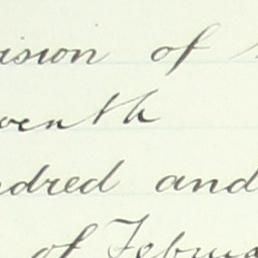 ision of
venth
ndred and
of Februa